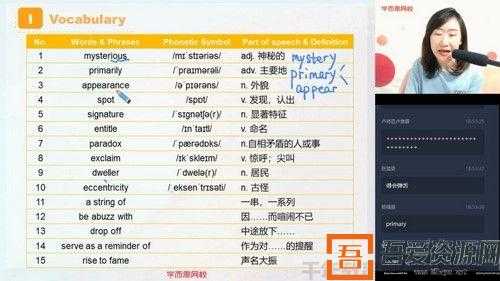 1 Vocabulary
No. Words & Phrases Phonetic Symbol Part of speech & Definition
1 mysterious /mɪˈstɪəriəs/ adj. 神秘的 mystery
2 primarily /ˈpraɪmərəli/ adv. 主要地 primary
3 appearance /əˈpɪərəns/ n. 外貌 appear
4 spot /spɒt/ v. 发现，认出
5 signature /ˈsɪɡnətʃə(r)/ n. 显著特征
6 entitle /ɪnˈtaɪtl/ v. 命名
7 paradox /ˈpærədɒks/ n.自相矛盾的人或事
8 exclaim /ɪkˈskleɪm/ v. 惊呼；尖叫
9 dweller /ˈdwelə(r)/ n. 居民
10 eccentricity /ˌeksenˈtrɪsəti/ n. 古怪
11 a string of 一串，一系列
12 be abuzz with 因……而喧闹不已
13 drop off 中途放下……
14 serve as a reminder of 作为对……的提醒
15 rise to fame 声名大振
学而思网校
学而思网校
primary
吾爱资源网